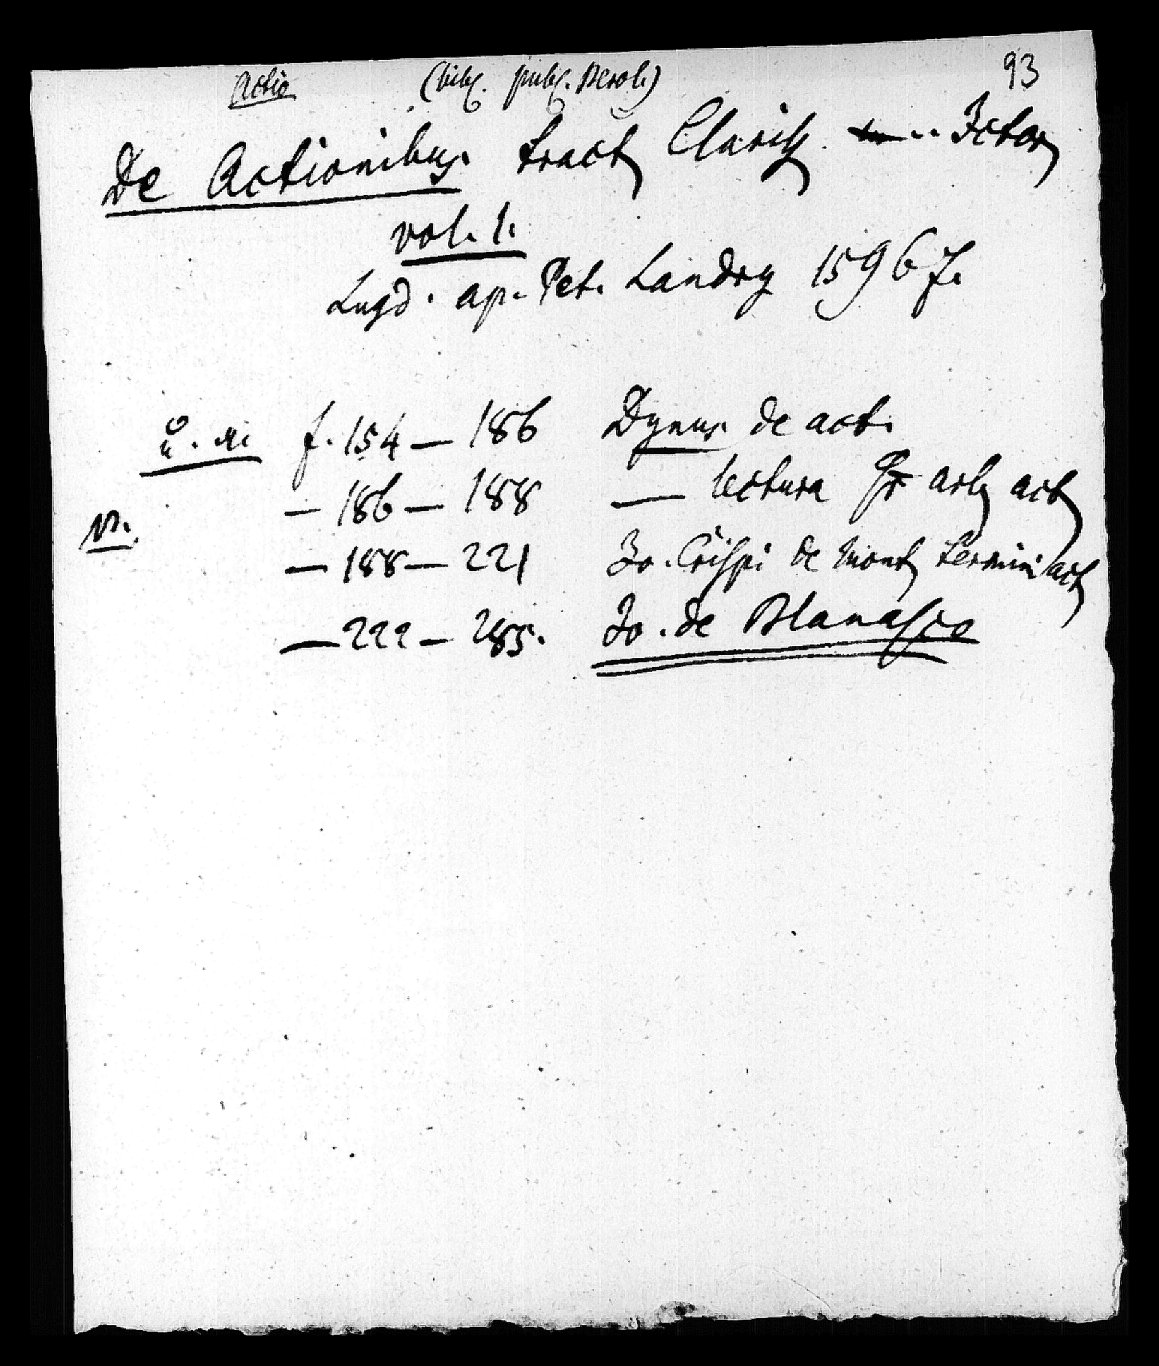 93
Actio (bibl. publ. Berol.)
De Actionibus. tract Clariss. .. Jctor
vol. 1.
Lugd. ap. Pet. Landry 1596 f.
u. a. f. 154 — 186 Dynus de act.
— 186 — 188 — lectura arb act
N.
— 188 — 221 Jo. Crispi de Mont termini act
— 222 — 285. Jo. de Blanasco